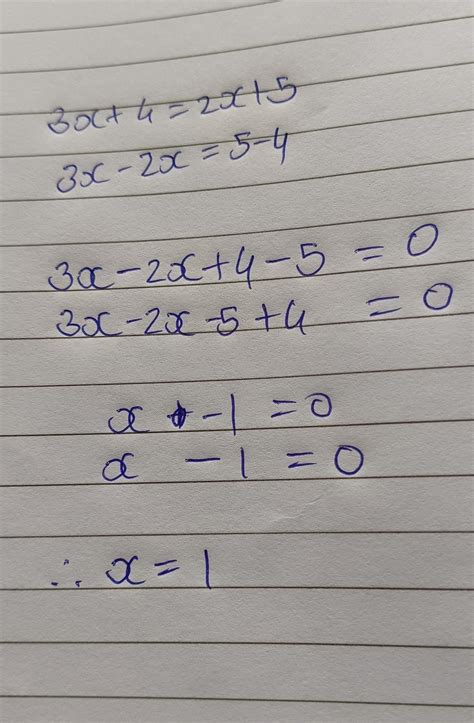 3x+4=2x+5
3x-2x=5-4
3x-2x+4-5 =0
3x-2x-5+4 =0
x -1=0
x -1=0
∴ x=1